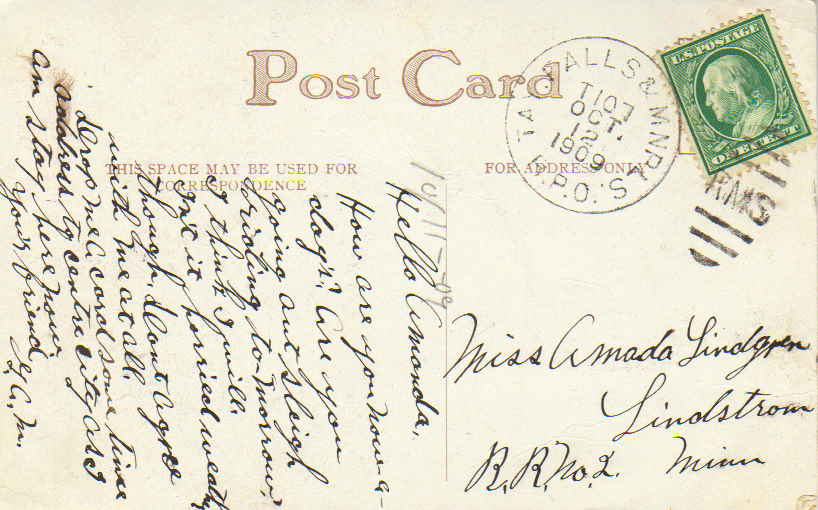 Post Card
THIS SPACE MAY BE USED FOR
CORRESPONDENCE
FOR ADDRESS ONLY
TAY. FALLS & MNPL'S
T107
OCT.
12
1909
R.P.O.
U.S. POSTAGE
ONE CENT
RMS
10/11-09
Hello Amanda,
How are you now-a-
days? Are you
going out sleigh
briding to-morrow?
I think I will.
Isn't it horried weath
though, dont agree
with me at all.
Drop me a card some time
address to centre city as I
am stay here now.
your friend
G.A.M.
Miss Amada Lindgren
Lindstrom
R.R.No.2. Minn